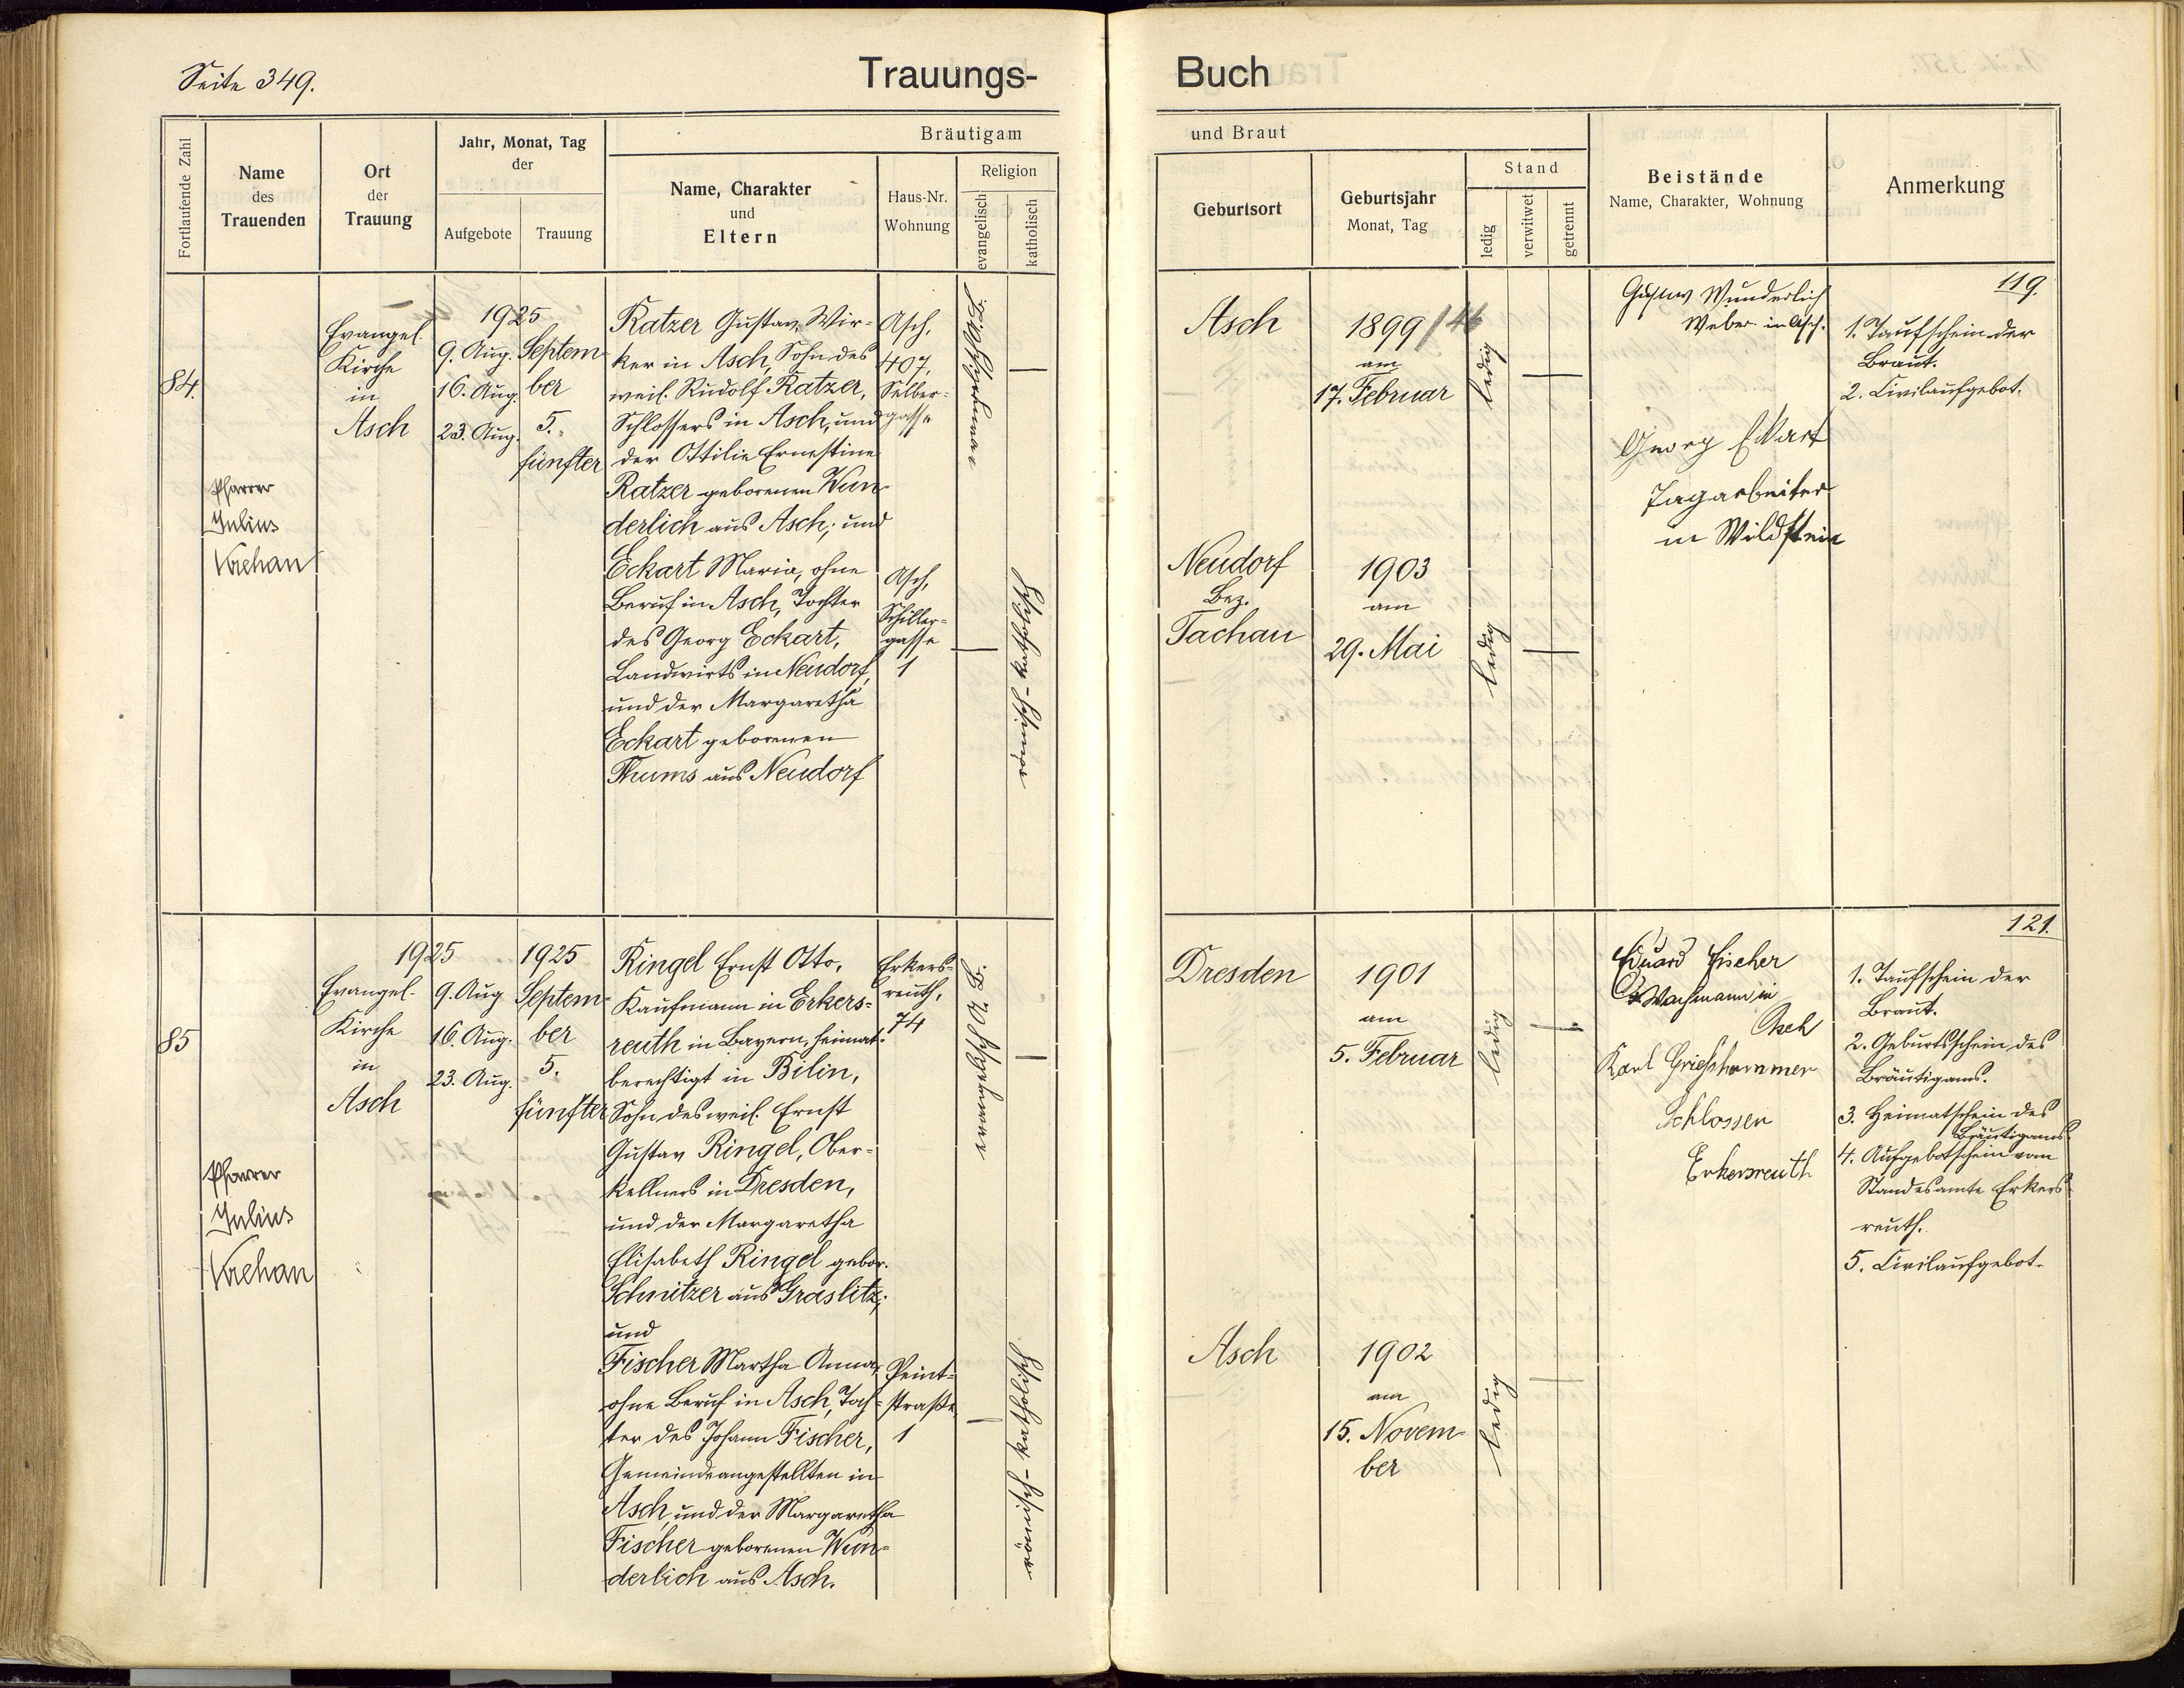 Seite 349.
Trauungs-
Buch
Fortlaufende Zahl
Name
des
Trauenden
Ort
der
Trauung
Jahr, Monat, Tag
der
Aufgebote
Trauung
Bräutigam
Name, Charakter
und
Eltern
Haus-Nr.
Wohnung
Religion
evangelisch
katholisch
und Braut
Geburtsort
Geburtsjahr
Monat, Tag
Stand
ledig
verwitwet
getrennt
Beistände
Name, Charakter, Wohnung
Anmerkung
84.
Pfarrer
Julius
Evangel.
Kirche
in
Asch
1925
9. Aug.
16. Aug.
23. Aug.
Septem-
ber
5.
fünfter
Ratzer Gustav, Wir-
ker in Asch, Sohn des
weil. Rudolf Ratzer,
Schlossers in Asch, und
der Ottilie Ernestine
Ratzer geborenen Wun-
derlich aus Asch; und
Eckart Maria, ohne
Beruf in Asch, Tochter
des Georg Eckart,
Landwirts in Neudorf,
und der Margaretha
Eckart geborenen
Thums aus Neudorf
Asch,
407,
Selber-
gasse
Asch,
Schiller-
gasse
1
römisch-katholisch
Asch
1899
am
17. Februar
ledig
Neudorf
Bez.
Tachau
1903
am
29. Mai
ledig
Gustav Wunderlich
Weber in Asch.
Georg Eckart
Tagarbeiter
in Wildstein
119.
1. Taufschein der
Braut.
2. Civilaufgebot.
85
Pfarrer
Julius
1925
Evangel.
Kirche
in
Asch
9. Aug
16. Aug.
23. Aug.
1925
Septem-
ber
5.
fünfter
Ringel Ernst Otto,
Kaufmann in Erkers-
reuth in Bayern, heimat-
berechtigt in Bilin,
Sohn des weil. Ernst
Gustav Ringel, Ober-
kellners in Dresden,
und der Margaretha
Elisabeth Ringel gebor.
Schnitzer aus Graslitz;
und
Fischer Martha Anna,
ohne Beruf in Asch, Toch-
ter des Johann Fischer,
Gemeindeangestellten in
Asch, und der Margaretha
Fischer geborenen Wun-
derlich aus Asch.
Erkers-
reuth,
74
Peint-
straße
1
römisch-katholisch
Dresden
1901
am
5. Februar
ledig
Asch
1902
am
15. Novem-
ber
ledig
Eduard Fischer
Wachmann in
Asch
Karl Grießhammer
Schlosser
Erkersreuth
121.
1. Taufschein der
Braut.
2. Geburtsschein des
Bräutigams.
3. Heimatschein des
Bräutigams.
4. Aufgebotschein vom
Standesamte Erkers-
reuth.
5. Civilaufgebot.